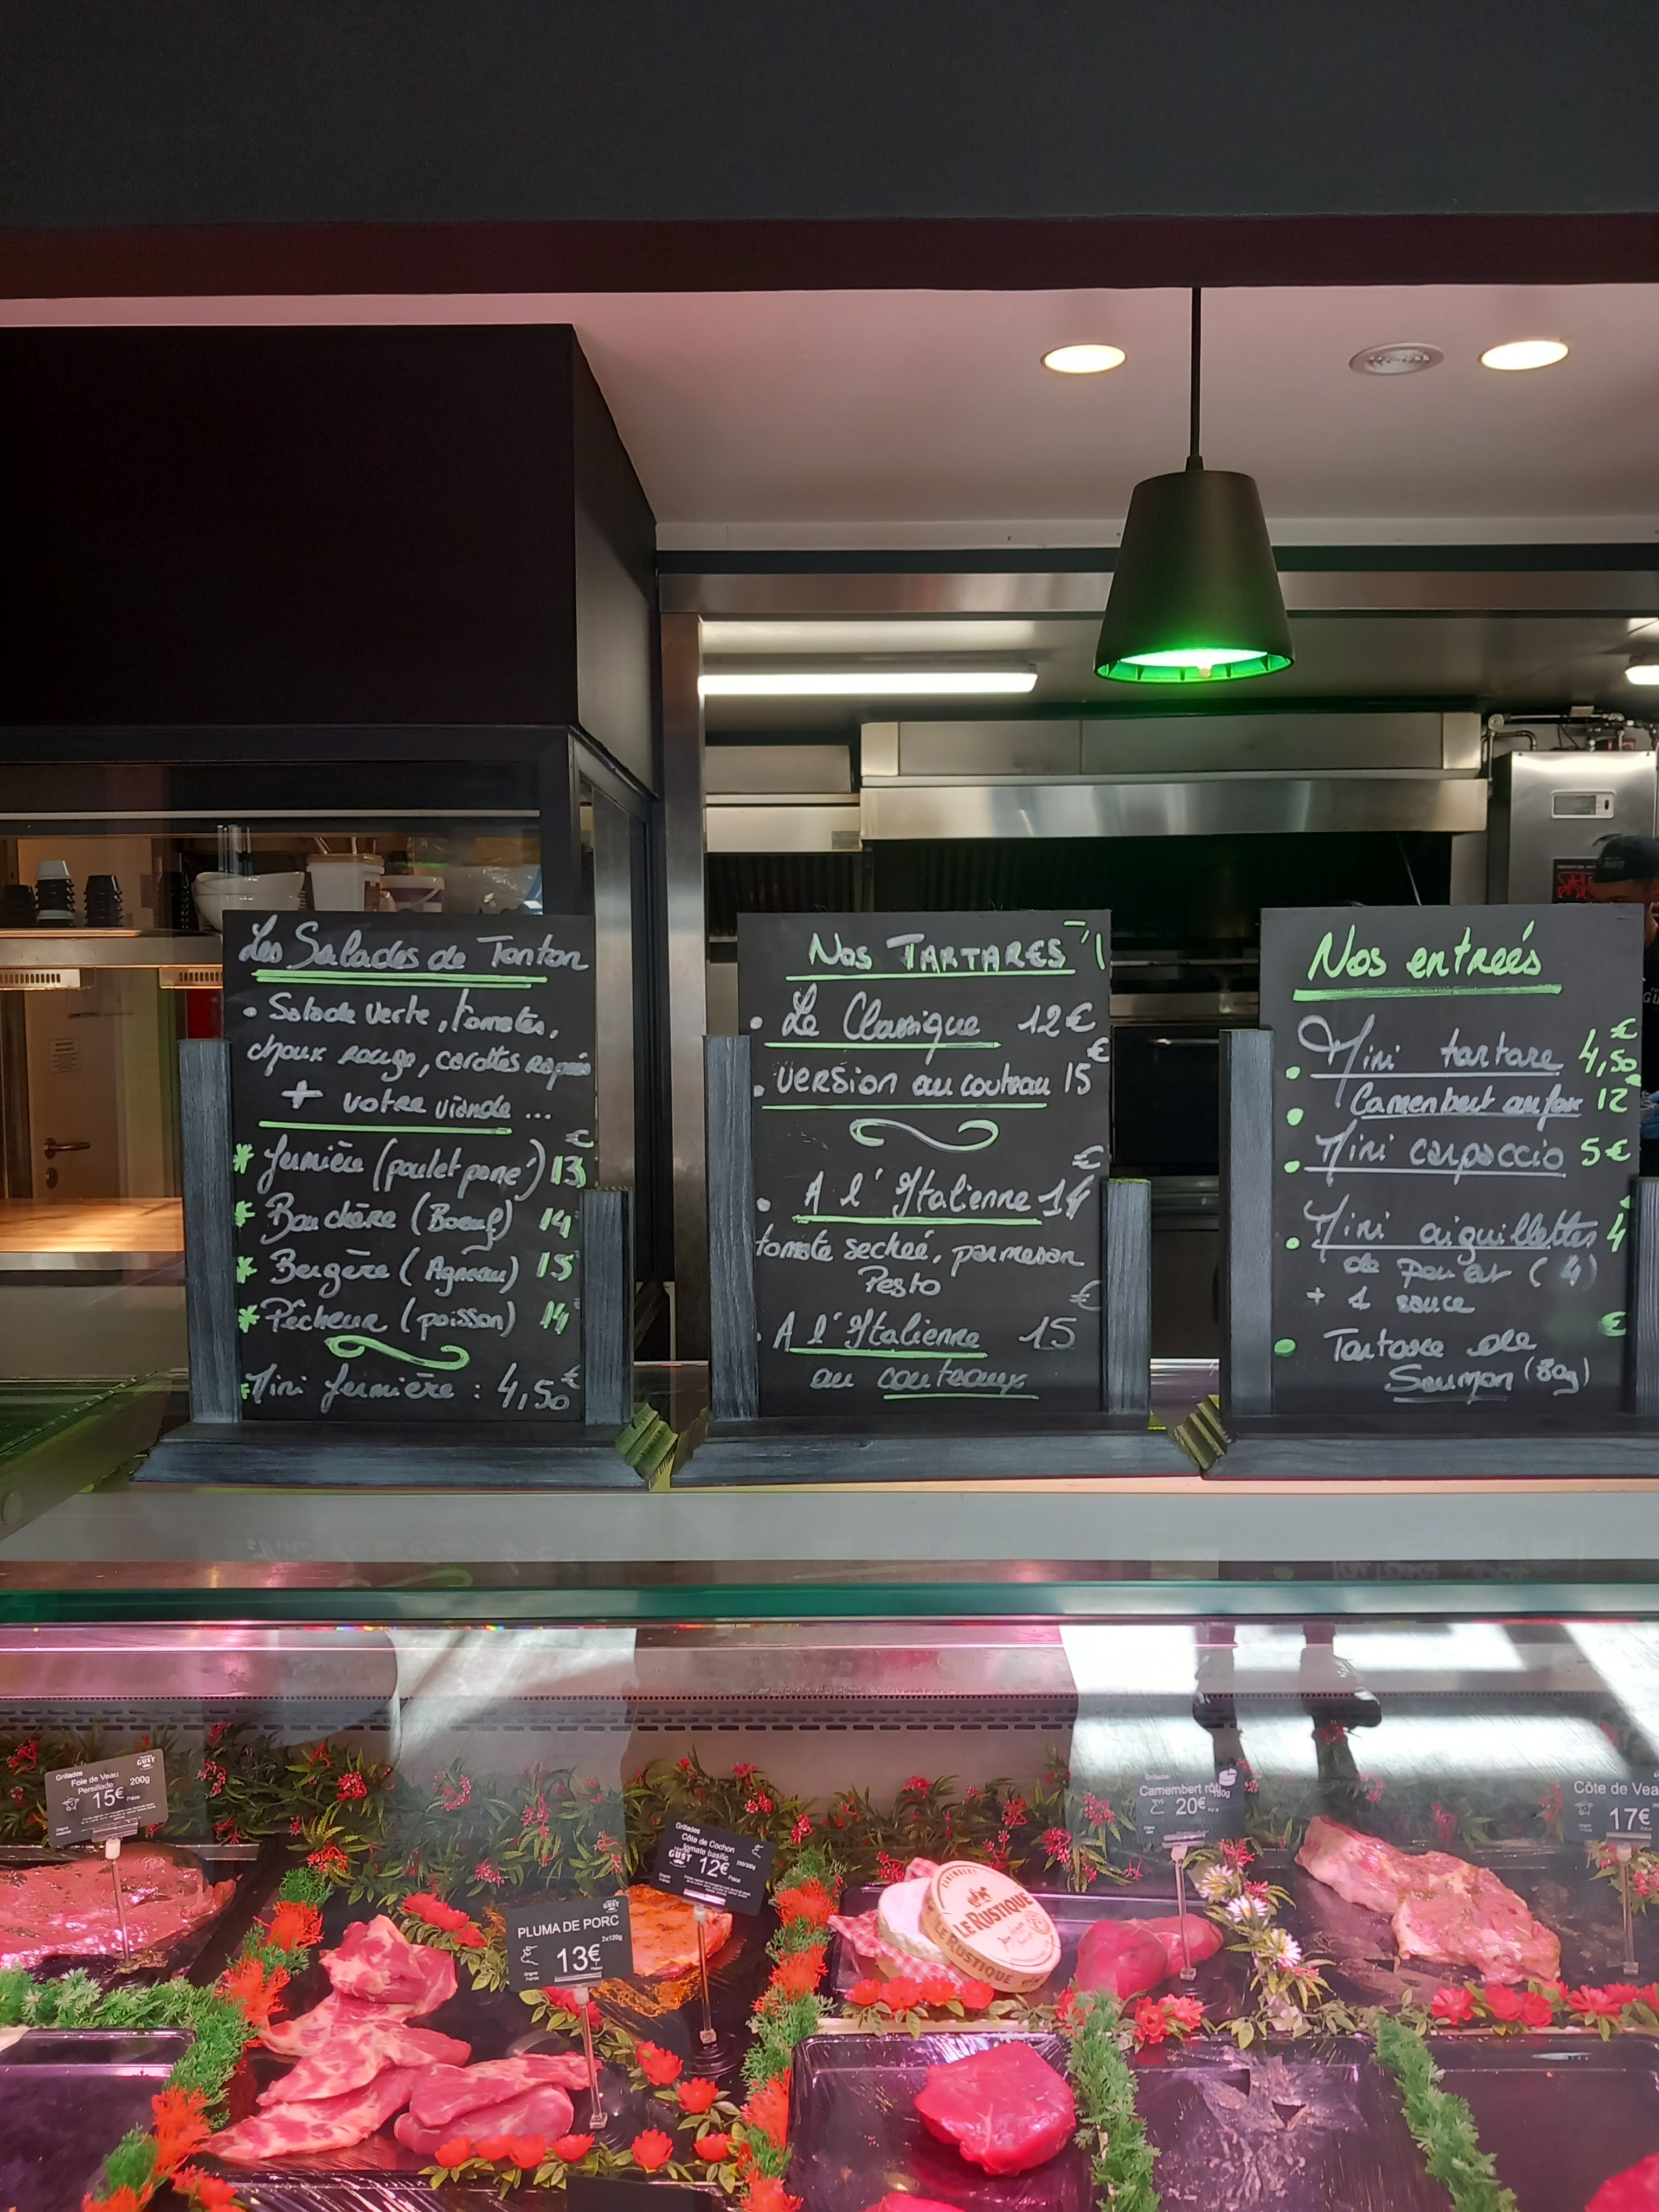 Les Salades de Tonton
• Salade verte, tomates,
choux rouge, carottes rapées
+ votre viande ...
* fermière (poulet pané) 13€
* Bouchère (Boeuf) 14
* Bergère (Agneau) 15
* Pêcheur (poisson) 14
* Mini fermière : 4,50€
Nos TARTARES
• Le Classique 12€
• Version au couteau 15€
• A l'Italienne 14€
tomate secheé, parmesan
Pesto
• A l'Italienne 15€
au couteaux
Nos entreés
• Mini tartare 4,50€
• Camembert au four 12
• Mini carpaccio 5€
• Mini aiguillettes 4
de poulet (4)
+ 1 sauce
• Tartare de €
Saumon (80g)
Grillades
Foie de Veau
Persillade 200g
15€ Pièce
GUST
PLUMA DE PORC
13€ 2x120g
Origine
France
GUST
Grillades
Côte de Cochon
tomate basilic
12€ Pièce
GUST
Grillades
Camembert rôti
20€
CAMEMBERT
LE RUSTIQUE
LE RUSTIQUE
Côte de Vea
17€